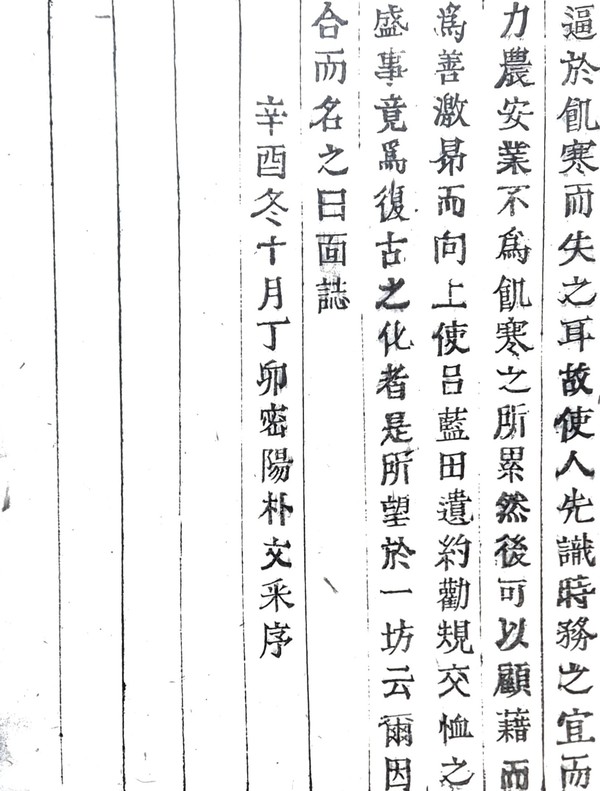 逼於飢寒而失之耳故使人先識時務之宜而
力農安業不爲飢寒之所累然後可以顧藉而
爲善激昻而向上使呂藍田遺約勸規交恤之
盛事竟爲復古之化者是所望於一坊云爾因
合而名之曰面誌
辛酉冬十月丁卯密陽朴文采序